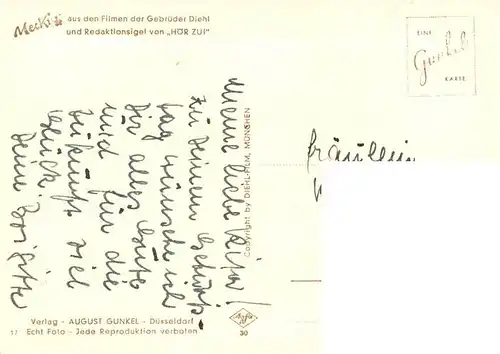 Mecki aus den Filmen der Gebrüder Diehl
und Redaktionsigel von „HÖR ZU!"
EINE
Gunkel
KARTE
Meine liebe
zu deinem Geburts-
tag wünsche ich
dir alles Gute
und für die
Zukunft viel
Glück.
Deine Brigitte
Copyright by DIEHL-FILM, MÜNCHEN
Fräulein
Verlag - AUGUST GUNKEL - Düsseldorf
Echt Foto - Jede Reproduktion verboten
Agfa
30